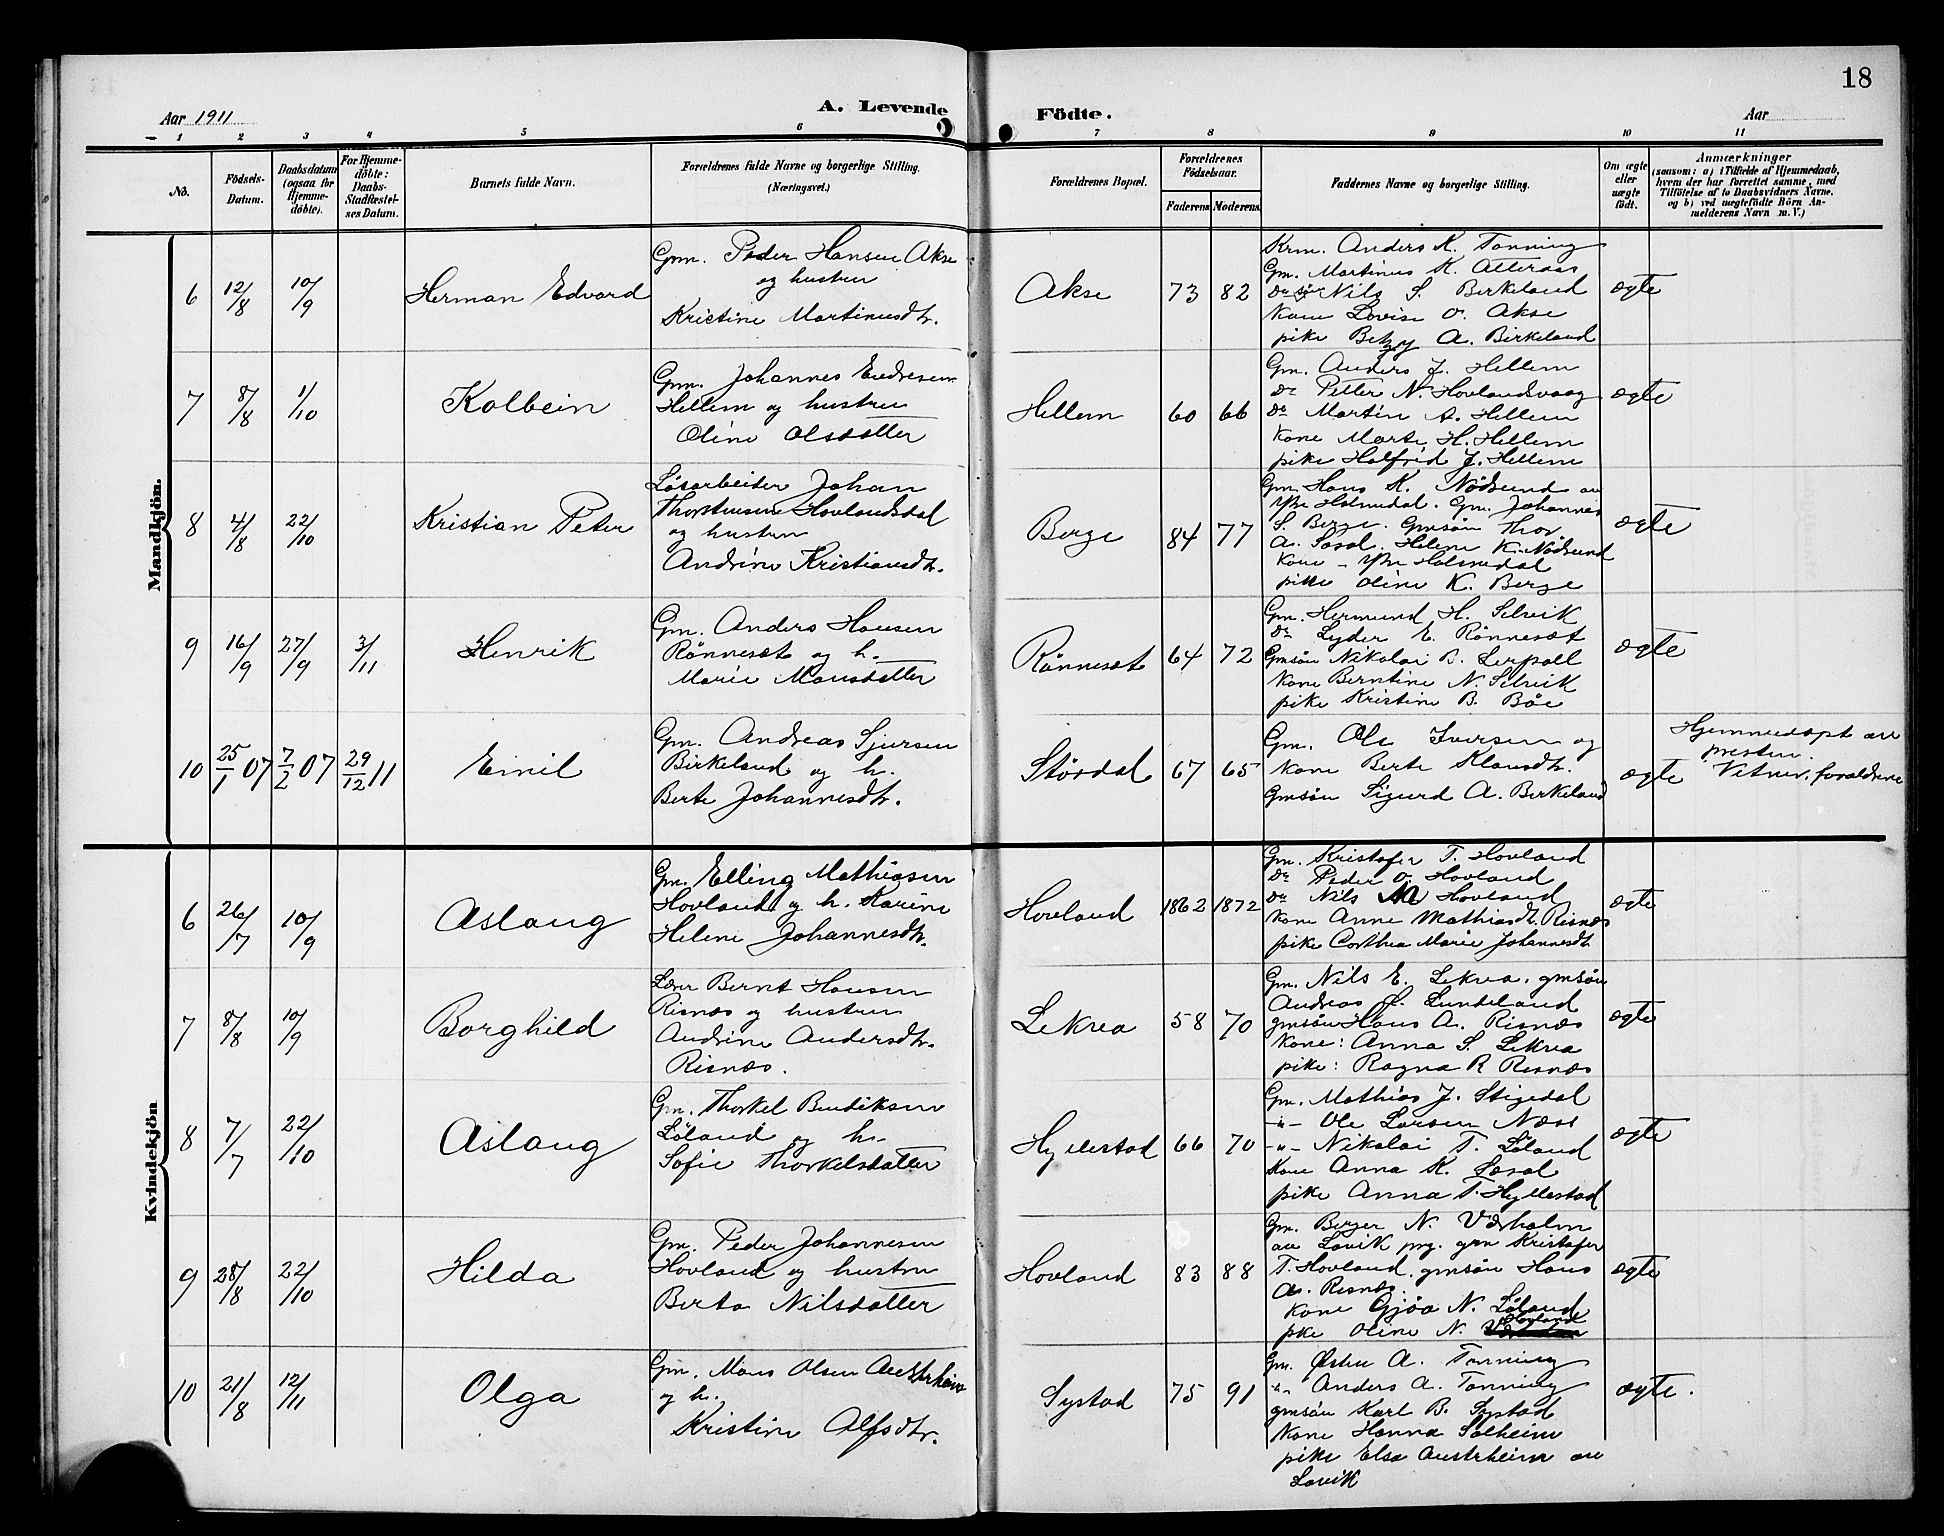 18
Aar 1911
A. Levende
Födte.
Aar
1 2 3 4 5 6 7 8 9 10 11
No.
Födsels-
Datum.
Daabsdatum
(ogsaa for
Hjemme-
döbte).
For Hjemme-
döbte:
Daabs-
Stadfæstel-
ses Datum.
Barnets fulde Navn.
Forældrenes fulde Navne og borgerlige Stilling.
(Næringsvei.)
Forældrenes Bopæl.
Forældrenes
Födselsaar.
Faderens Moderens
Faddernes Navne og borgerlige Stilling.
Om ægte
eller
uægte
födt.
Anmærkninger
(saasom: a) i Tilfælde af Hjemmedaab,
hvem der har forrettet samme, med
Tilföielse af to Daabsvidners Navne,
og b) ved uægtefödte Börn An-
melderens Navn m. V.)
Mandkjön.
6 12/8 10/9 Herman Edvard
Gm. Peder Hansen Akse
og hustru
Kristine Martinusdtr.
Akse 73 82
Krm. Anders K. Tonning
Gm. Martinus K. Atteraas
Do søn Nils S. Birkeland
Kone Lovise O. Akse
pike Betzy A. Birkeland
ægte
7 8/8 1/10 Kolbein
Gm. Johannes Endresen
Hellem og hustru
Oline Olsdatter
Hellem 60 66
Gm. Anders J. Hellem
do Petter N. Hovlandsvaag
do Martin A. Hellem
Kone Marte H. Hellem
pike Halfrid J. Hellem
ægte
8 4/8 22/10 Kristian Peter
Løsarbeider Johan
Thorstensen Hovlandsdal
og hustru
Andrine Kristiansdtr.
Berge 84 77
Gm. Hans K. Nødsund av
Ytre Holmedal. Gm. Johannes
S. Berge. Gmsøn Thor
A. Søsal. Helene K. Nødsund
Kone – Ytre Holmedal
pike Oline K. Berge
ægte
9 16/9 27/9 3/11 Henrik
Gm. Anders Hansen
Rønneset og h.
Marie Monsdatter
Rønneset 64 72
Gm. Hermund H. Selvik
do Lyder E. Rønneset
Gmsøn Nikolai B. Lerpoll
Kone Berntine N. Selvik
pike Kristine B. Bøe
ægte
10 25/1 07 7/2 07 29/12 11 Emil
Gm. Andreas Sjursen
Birkeland og h.
Berte Johannesdtr.
Stördal 67 65
Gm. Ole Iversen og
Kone Berte Klausdtr.
Gmsøn Sigurd A. Birkeland
ægte
Hjemmedøpt av
presten.
Vitner, forældrene
Kvindekjön
6 26/7 10/9 Aslaug
Gm. Elling Mathiasen
Hovland og h. Karine
Helene Johannesdtr.
Hovland 1862 1872
Gm. Kristofer T. Hovland
do Peder O. Hovland
do Nils M Hovland
Kone Anne Mathiasdtr. Risnes
pike Corthea Marie Johannesdtr
ægte
7 8/8 10/9 Borghild
Lærer Bernt Hansen
Risnæs og hustru
Andrine Andersdtr.
Risnæs.
Lekrea 58 70
Gm. Nils E. Lekrea, gmsøn
Andreas L. Lundeland
gmsøn Hans A. Risnæs
Kone: Anna S. Lekrea
pike: Ragna R Risnæs
ægte
8 7/7 22/10 Aslaug
Gm. Thorkel Bendiksen
Løland og h.
Sofie Thorkelsdatter
Hyllestad 66 70
Gm. Mathias J. Stigedal
-"- Ole Larsen Næss
-"- Nikolai T. Løland
Kone Anna K. Sæsol
pike Anna T. Hyllestad
ægte
9 28/8 22/10 Hilda
Gm. Peder Johannesen
Hovland og hustru
Berta Nilsdatter
Hovland 83 88
Gm. Berger N. Værholm
av Lavik prg. gm Kristofer
T. Hovland, gmsøn Hans
A. Risnæs.
Kone Gjøa N. Løland
pke Oline N. Hovland
ægte
10 21/8 12/11 Olga
Gm. Mons Olsen Austrheim
og h.
Kristine Alfsdtr.
Systad 75 91
Gm. Østen A. Tonning
"- Anders A. Tonning
gmsøn Karl B. Systad
Kone Hanna Solheim
pike Elsa Austrheim av
Lavik
ægte.